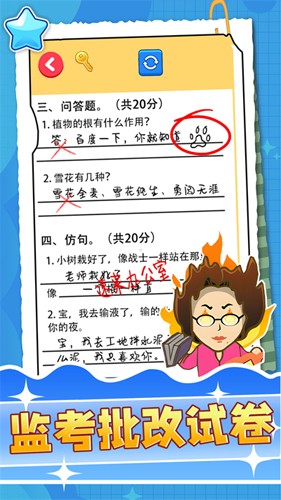 三、问答题。（共20分）
1. 植物的根有什么作用？
答：百度一下，你就知道
2. 雪花有几种？
雪花全麦、雪花纯生、勇闯天涯
四、仿句。（共20分）
1. 小树栽好了，像战士一样站在那
老师栽
像
办公室
一样
2. 宝，我去输液了，输的
你的夜。
宝，我去工地拌水泥，
么泥，我只喜欢你。
监考批改试卷